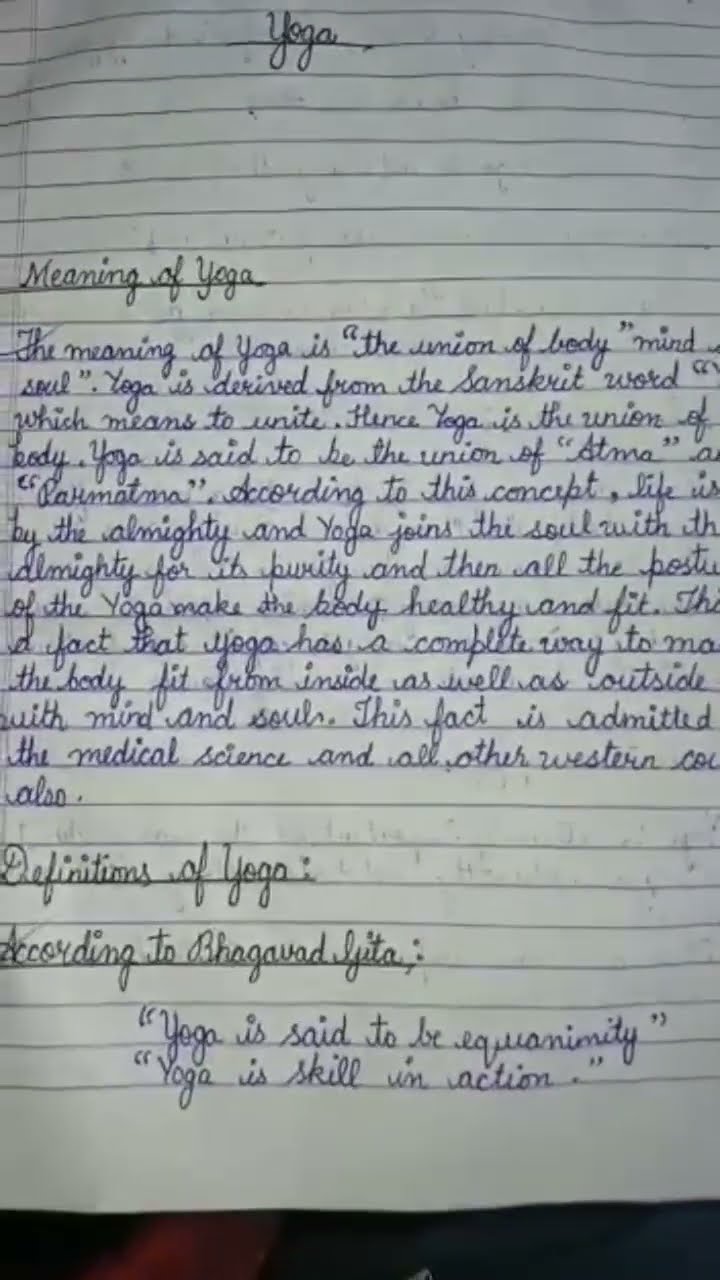 Yoga
Meaning of Yoga
The meaning of Yoga is "the union of body" mind
soul". Yoga is derived from the Sanskrit word "
which means to unite. Hence Yoga is the union of
body. Yoga is said to be the union of "Atma"
"Parmatma". According to this concept, life is
by the almighty and Yoga joins the soul with
almighty for its purity and then all the
of the Yoga make the body healthy and fit.
a fact that yoga has a complete way to
the body fit from inside as well as outside
with mind and souls. This fact is admitted
the medical science and all other western
also.
Definitions of Yoga :
According to Bhagavad Gita, :
"Yoga is said to be equanimity"
"Yoga is skill in action."